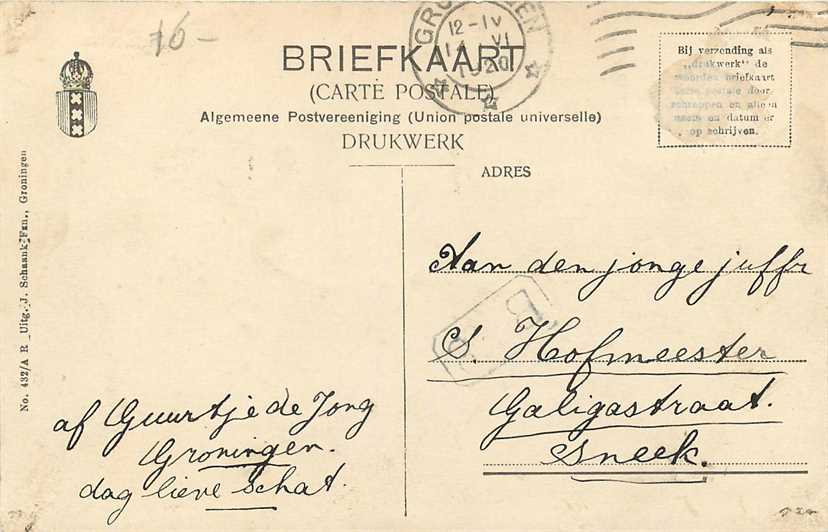 76-
GRONINGEN
12-IV
VI
1920
BRIEFKAART
(CARTE POSTALE)
Algemeene Postvereeniging (Union postale universelle)
DRUKWERK
Bij verzending als
„drukwerk" de
woorden briefkaart
carte postale door-
schrappen en alleen
naam en datum er
op schrijven.
ADRES
Aan den jonge juffr
S. Hofmeester
Galigastraat.
Sneek.
af Guurtje de Jong
Groningen.
dag lieve schat.
No. 432/A R Uitg. J. Schaank-Fzn., Groningen